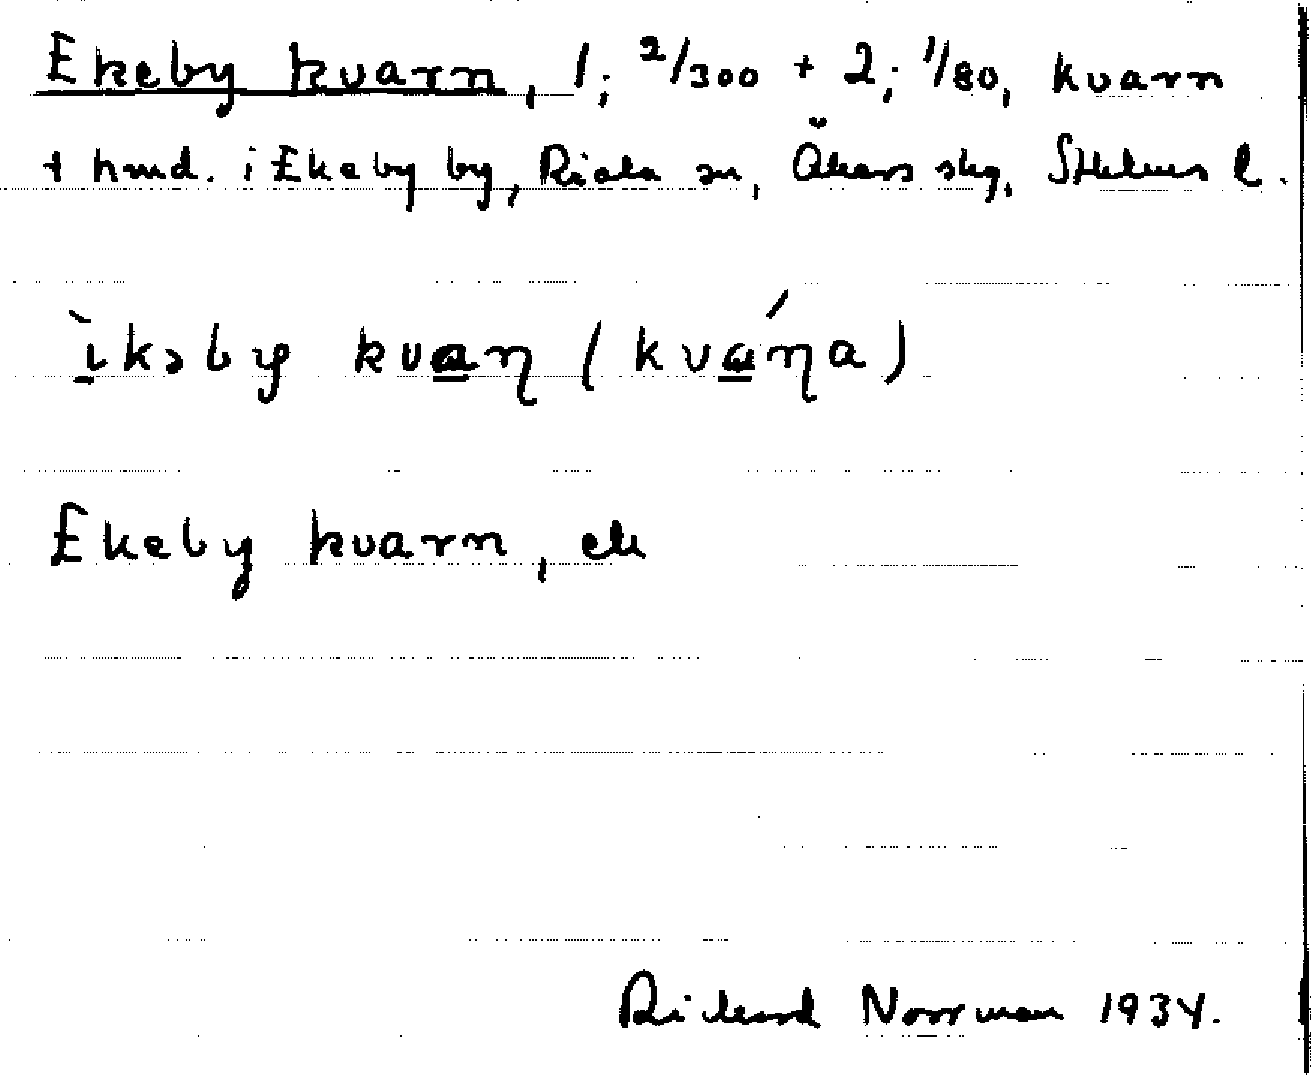 Ekeby kvarn, 1; 2/300 + 2; 1/80, kvarn
+ hmd. i Ekeby by, Riala sn, Åkers skg, Sthlms l.
ìkəby kvaɳ (kváɳa)
Ekeby kvarn, ek
Rickard Norrman 1934.